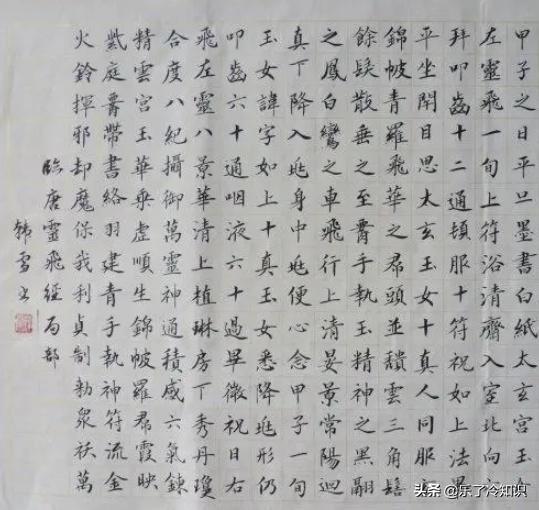 甲子之日平旦墨書白紙太玄宮玉女
左靈飛一旬上符浴清齋入室北向六
拜叩齒十二通頓服十符祝如上法畢
平坐閉目思太玄玉女十真人同服玄
錦帔青羅飛華之帬頭並頹雲三角髻
餘髮散垂之至腰手執玉精神之黑翮
之鳳白鸞之車飛行上清晏景常陽迴
真丅降入兆身中兆便心念甲子一旬
玉女諱字如上十真玉女悉降兆形仍
叩齒六十通咽液六十過畢微祝日右
飛左靈八景華清上植琳房丅秀丹瓊
合度八紀攝御萬靈神通積感六氣鍊
精雲宮玉華乘虛順生錦帔羅帬霞映
紫庭腰帶書絡羽建青手執神符流金
火鈴揮邪却魔保我利貞制勅衆祅萬
臨唐靈飛經局部
韩雪书
头条 @乐了冷知识